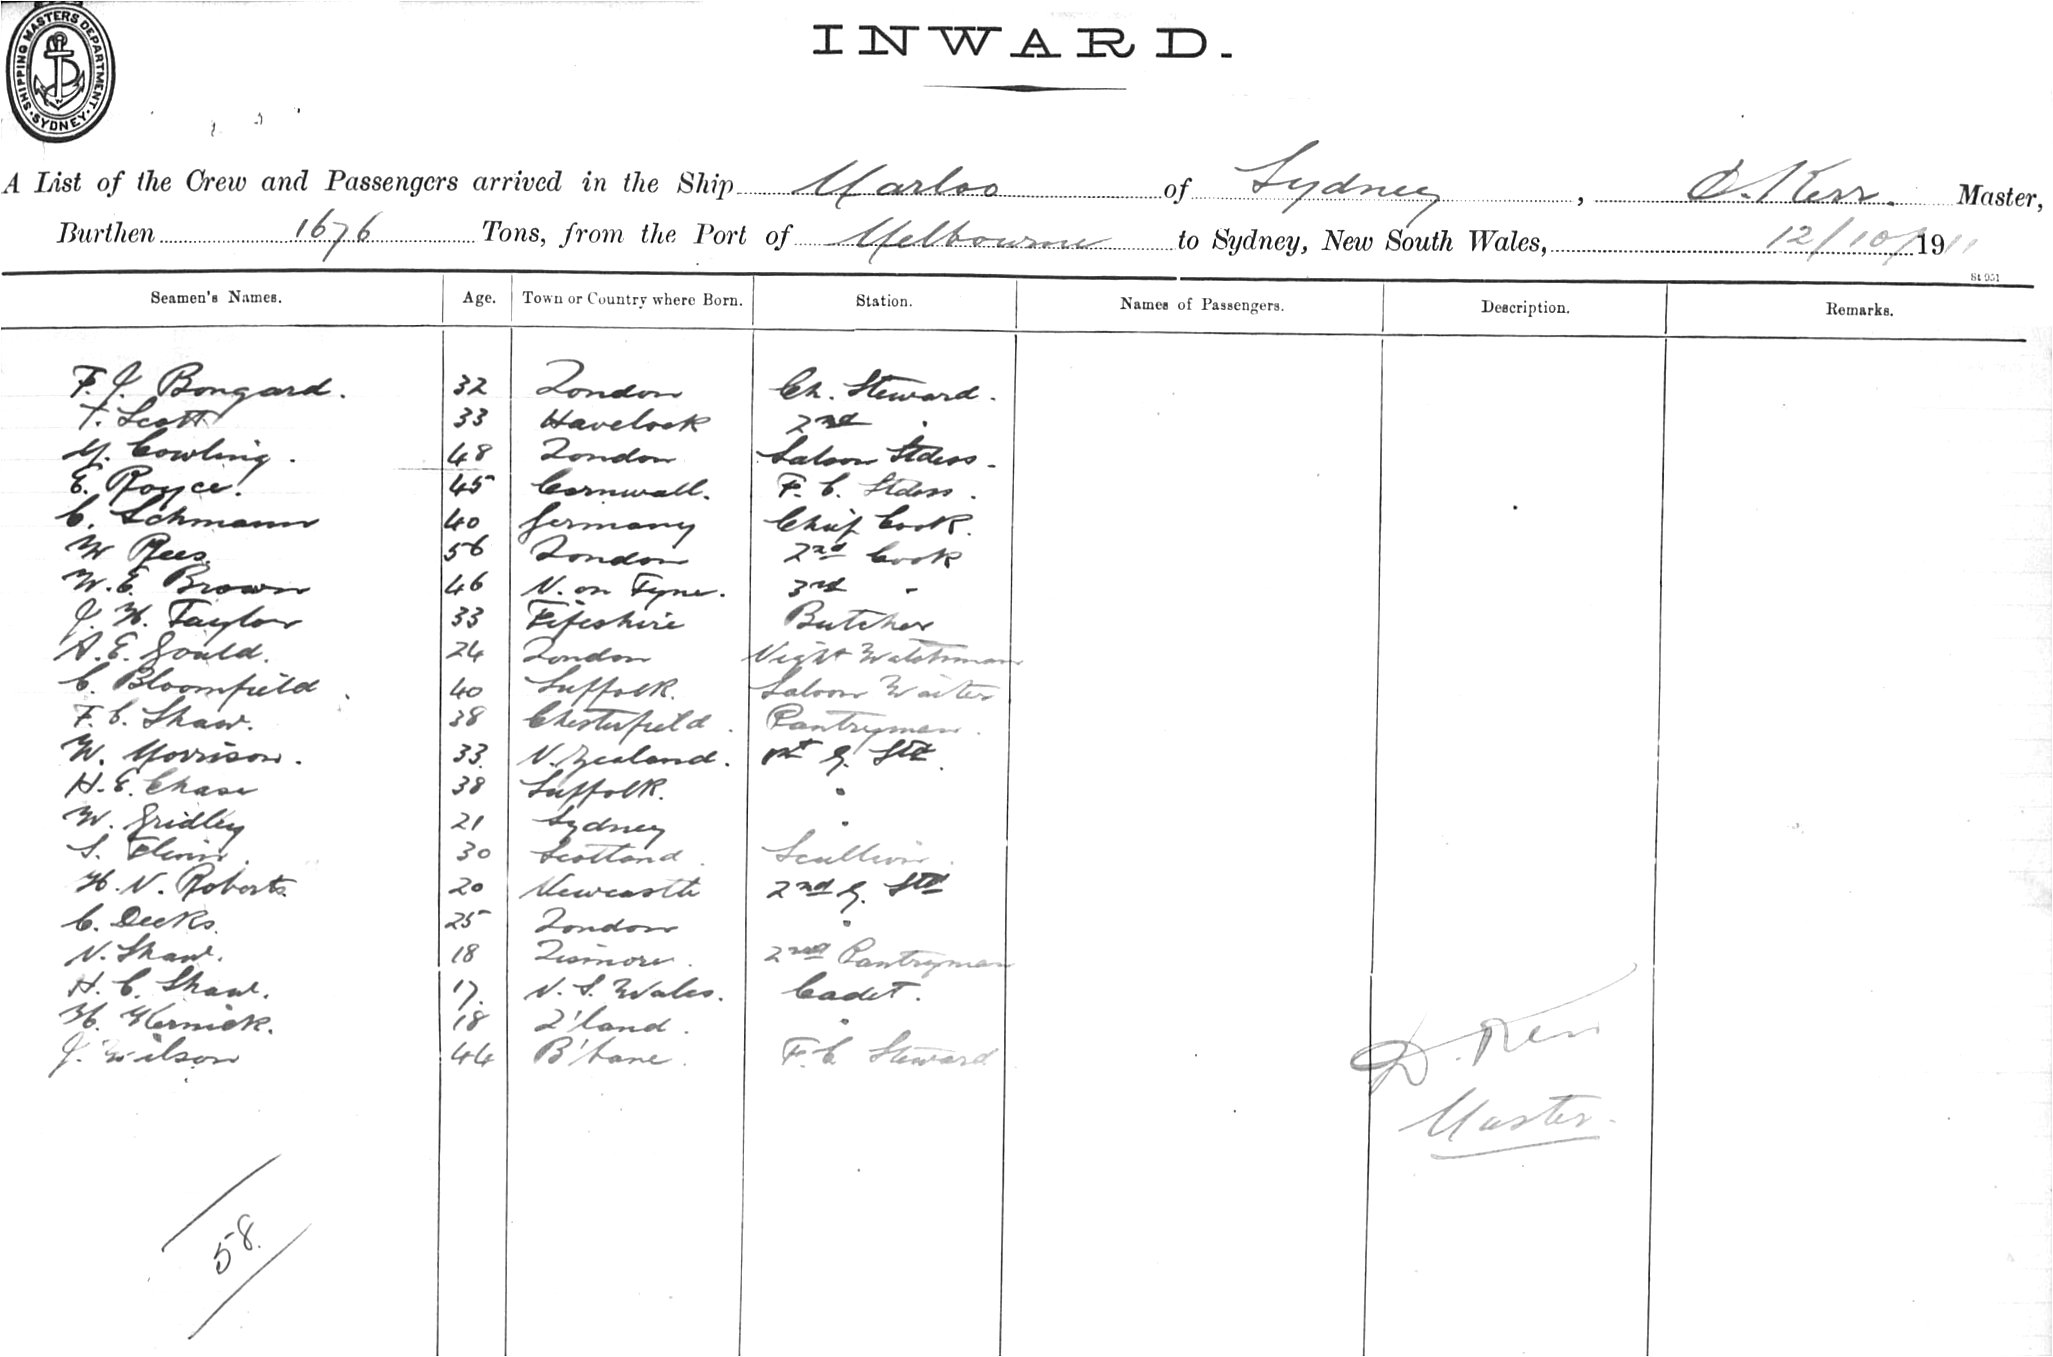 SHIPPING MASTERS DEPARTMENT · SYDNEY ·
INWARD.
A List of the Crew and Passengers arrived in the Ship Marloo of Sydney, D. Kerr. Master,
Burthen 1676 Tons, from the Port of Melbourne to Sydney, New South Wales, 12/10/1911
St 951
Seamen's Names. Age. Town or Country where Born. Station. Names of Passengers. Description. Remarks.
F. J. Bongard. 32 London Ch. Steward.
T. Scott 33 Havelock 2nd "
M. Cowling. 48 London Saloon Stdess.
E. Royce. 45 Cornwall. F. C. Stdess.
C. Schmann 40 Germany Chief Cook.
W Rees 56 London 2nd Cook
W. E. Brown 46 N. on Tyne. 3rd "
J. H. Taylor 33 Fifeshire Butcher
A. E. Gould. 24 London Night Watchman
C. Bloomfield. 40 Suffolk. Saloon Waiter
F. C. Shaw. 38 Chesterfield. Pantryman.
W. Morrison. 33. N. Zealand. 1st G. Std.
H. E. Chase 38 Suffolk. "
W. Gridley 21 Sydney "
S. 30 Scotland.
H. N. Roberts. 20 Newcastle 2nd G. Std
C. Deeks. 25 London "
N. Shaw. 18 Lismore. 2nd Pantryman
H. C. Shaw. 17. N. S. Wales. Cadet.
H. Kernick. 18 Q'land. "
J. Wilson 44 B'bane. F. C. Steward
D. Kerr
Master.
58.